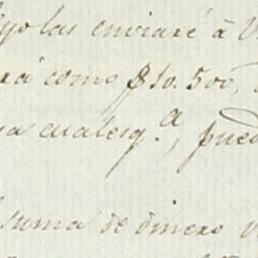 las enviaré à V
rá como $10.500,
cualesq.ª, pued
suma de dinero